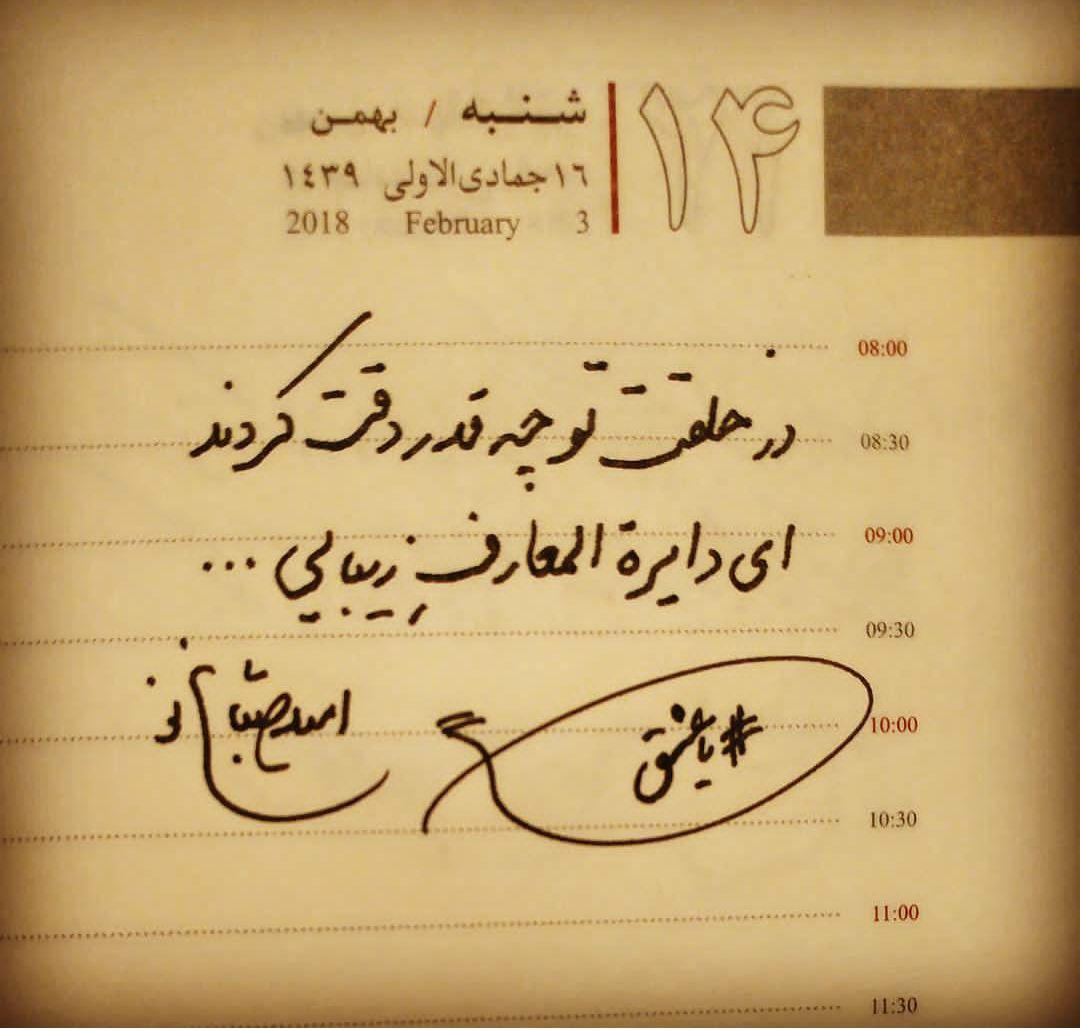 ۱۴
شنبه / بهمن
١٦ جمادی‌الاولی ١٤٣٩
3 February 2018
08:00
در خلقت تو چه قدر دقت کردند
08:30
09:00
ای دایرة المعارفِ زیبایی ...
09:30
امید صباغ نو
#یاعشق
10:00
10:30
11:00
11:30